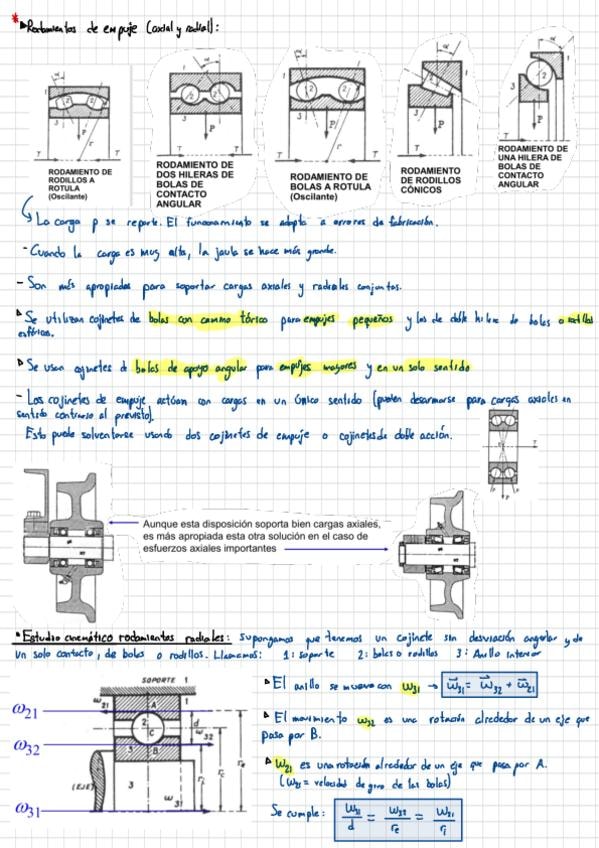 * Rodamientos de empuje (axial y radial):
RODAMIENTO DE
RODILLOS A
ROTULA
(Oscilante)
RODAMIENTO DE
DOS HILERAS DE
BOLAS DE
CONTACTO
ANGULAR
RODAMIENTO DE
BOLAS A ROTULA
(Oscilante)
RODAMIENTO
DE RODILLOS
CÓNICOS
RODAMIENTO DE
UNA HILERA DE
BOLAS DE
CONTACTO
ANGULAR
La carga p se reparte. El funcionamiento se adapta a errores de fabricación.
- Cuando la carga es muy alta, la jaula se hace más grande.
- Son más apropiados para soportar cargas axiales y radiales conjuntas.
Se utilizan cojinetes de bolas con camino tórico para empujes pequeños y los de doble hilera de bolas o rodillos
esféricos.
Se usan cojinetes d bolas de apoyo angular para empujes mayores y en un solo sentido
- Los cojinetes de empuje actúan con cargas en un único sentido (pueden desarmarse para cargas axiales en
sentido contrario al previsto).
Esto puede solventarse usando dos cojinetes de empuje o cojinetes de doble acción.
Aunque esta disposición soporta bien cargas axiales,
es más apropiada esta otra solución en el caso de
esfuerzos axiales importantes
Estudio cinemático rodamientos radiales: Supongamos que tenemos un cojinete sin desviación angular y de
un solo contacto, de bolas o rodillos. Llamamos: 1: soporte 2: bolas o rodillos 3: Anillo interior
SOPORTE 1
ω21
ω32
ω31
(EJE)
El anillo se mueve con ω31 → ω31 = ω32 + ω21
El movimiento ω32 es una rotación alrededor de un eje que
pasa por B.
ω21 es una rotación alrededor de un eje que pasa por A.
(ω21 = velocidad de giro de las bolas)
Se cumple: ω31/d = ω32/re = ω21/ri